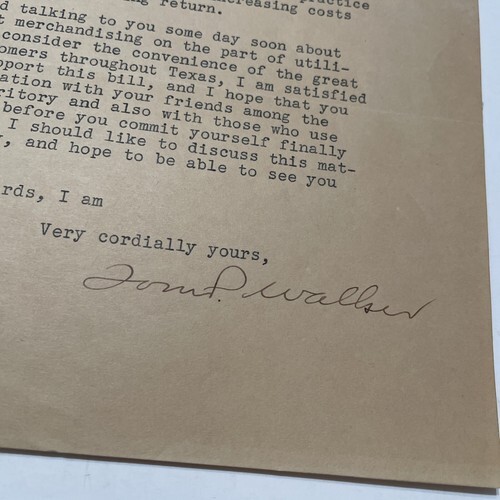 practice
increasing costs
return.
talking to you some day soon about
merchandising on the part of utili-
consider the convenience of the great
omers throughout Texas, I am satisfied
pport this bill, and I hope that you
ation with your friends among the
ritory and also with those who use
before you commit yourself finally
I should like to discuss this mat-
, and hope to be able to see you
rds, I am
Very cordially yours,
Tom P. Walker